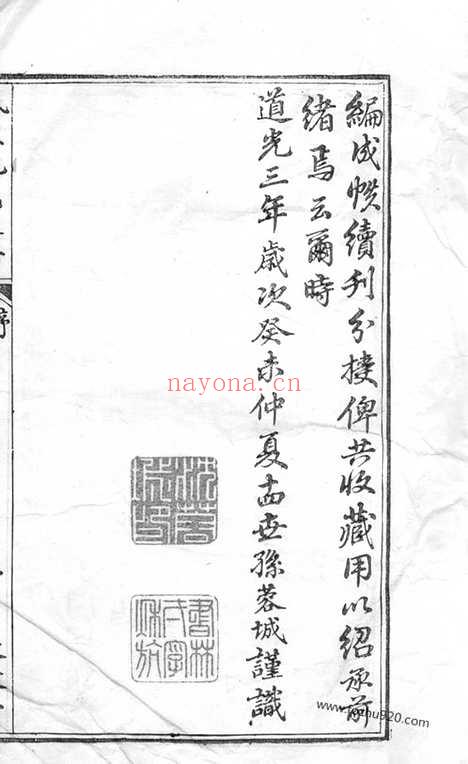 編成帙續刋分授俾共收藏用以紹承前
緒焉云爾時
道光三年歲次癸未仲夏十四世孫蓉城謹識
序
nayona.cn
920.com